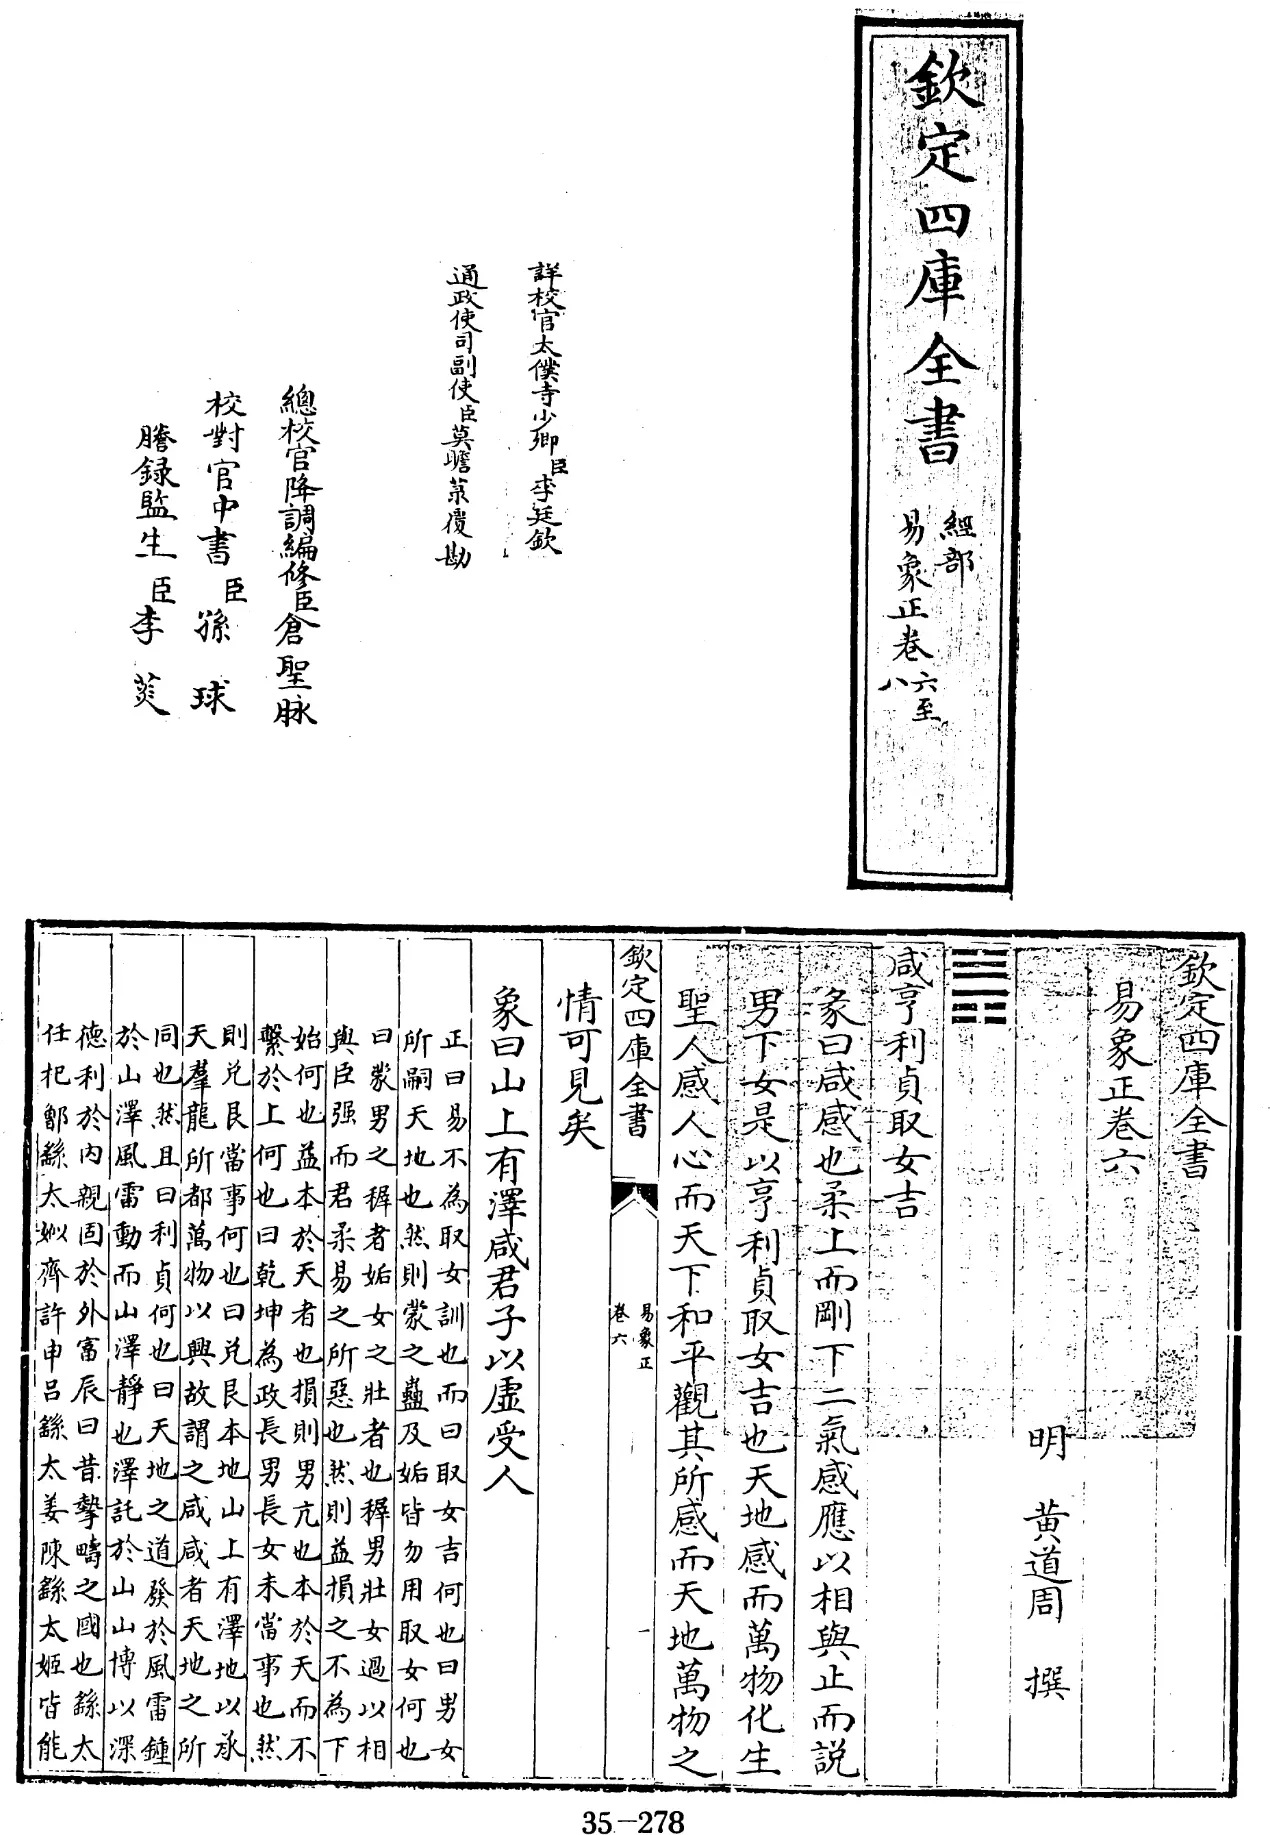 欽定四庫全書
經部
易象正卷六至八
詳校官太僕寺少卿臣李廷欽
通政使司副使臣莫瞻菉覆勘
總校官降調編修臣倉聖脉
校對官中書臣孫球
謄録監生臣李
欽定四庫全書
易象正卷六
明 黄道周 撰
咸亨利貞取女吉
彖曰咸感也柔上而剛下二氣感應以相與止而説
男下女是以亨利貞取女吉也天地感而萬物化生
聖人感人心而天下和平觀其所感而天地萬物之
欽定四庫全書
易象正
卷六
一
情可見矣
象曰山上有澤咸君子以虚受人
正曰易不為取女訓也而曰取女吉何也曰男女
所嗣天地也然則蒙之蠱及姤皆勿用取女何也
曰蒙男之穉者姤女之壯者也穉男壯女過以相
與臣强而君柔易之所惡也然則益損之不為下
始何也益本於天者也損則男亢也本於天而不
繫於上何也曰乾坤為政長男長女未當事也然
則兑艮當事何也曰兑艮本地山上有澤地以承
天羣龍所都萬物以興故謂之咸咸者天地之所
同也然且曰利貞何也曰天地之道發於風雷鍾
於山澤風雷動而山澤靜也澤託於山山博以深
德利於内親固於外富辰曰昔摯疇之國也繇太
任杞鄫繇太姒齊許申吕繇太姜陳繇太姬皆能
35-278